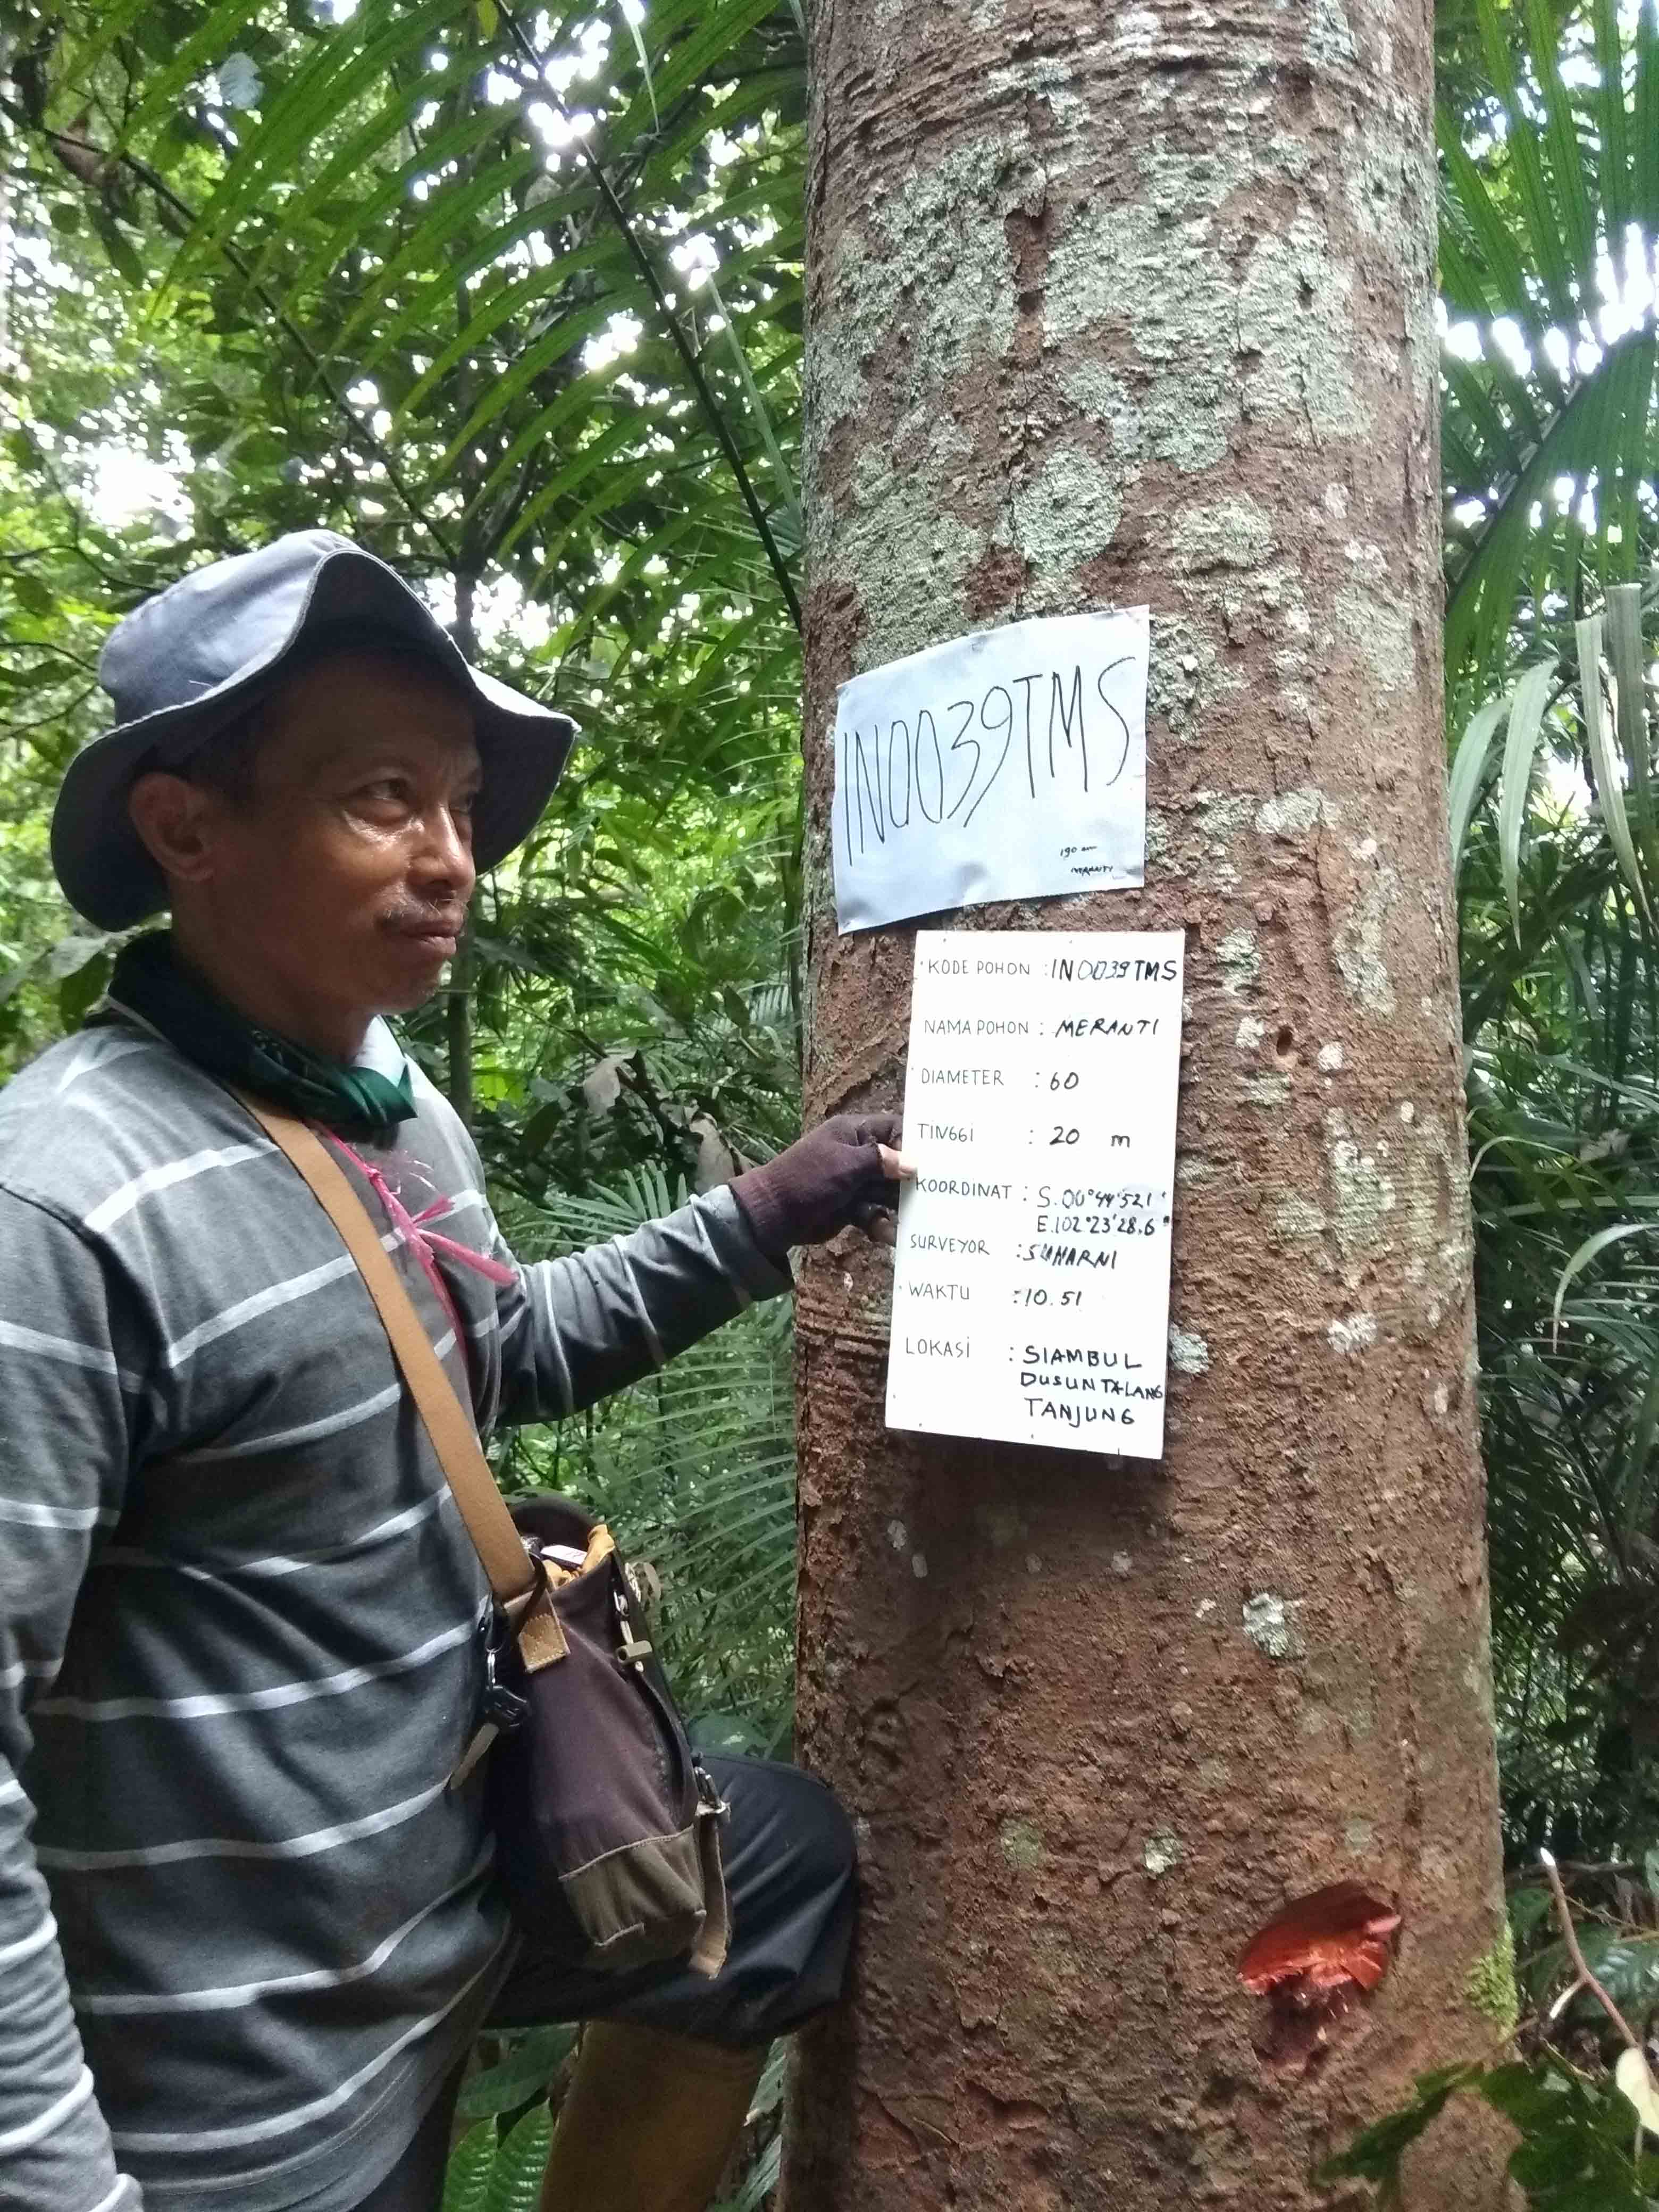 IN0039TMS
190 cm
MERANTI
KODE POHON : IN0039TMS
NAMA POHON : MERANTI
DIAMETER : 60
TINGGI : 20 m
KOORDINAT : S.00°44'52.1"
E.102°23'28.6"
SURVEYOR : SUHARNI
WAKTU : 10.51
LOKASI : SIAMBUL
DUSUN TALANG
TANJUNG